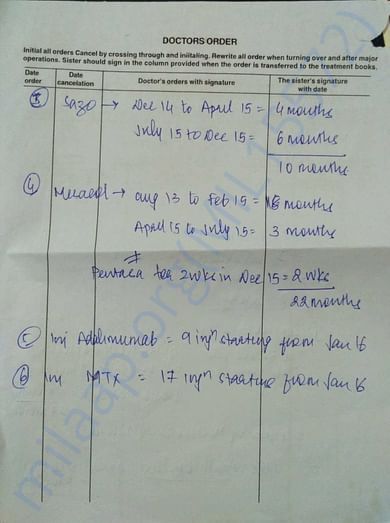 DOCTORS ORDER
Initial all orders Cancel by crossing through and initialing. Rewrite all order when turning over and after major
operations. Sister should sign in the column provided when the order is transferred to the treatment books.
Date order
Date cancelation
Doctor's orders with signature
The sister's signature with date
③ Sazo → Dec 14 to April 15 = 4 months
July 15 to Dec 15 = 6 months
10 months
④ → Aug 13 to Feb 15 = months
April 15 to July 15 = 3 months
2 wks in Dec 15 = 2 wks
22 months
⑤ Inj Adalimumab = 9 injn starting from Jan 16
⑥ Inj MTX = 17 injn starting from Jan 16
milaap.org